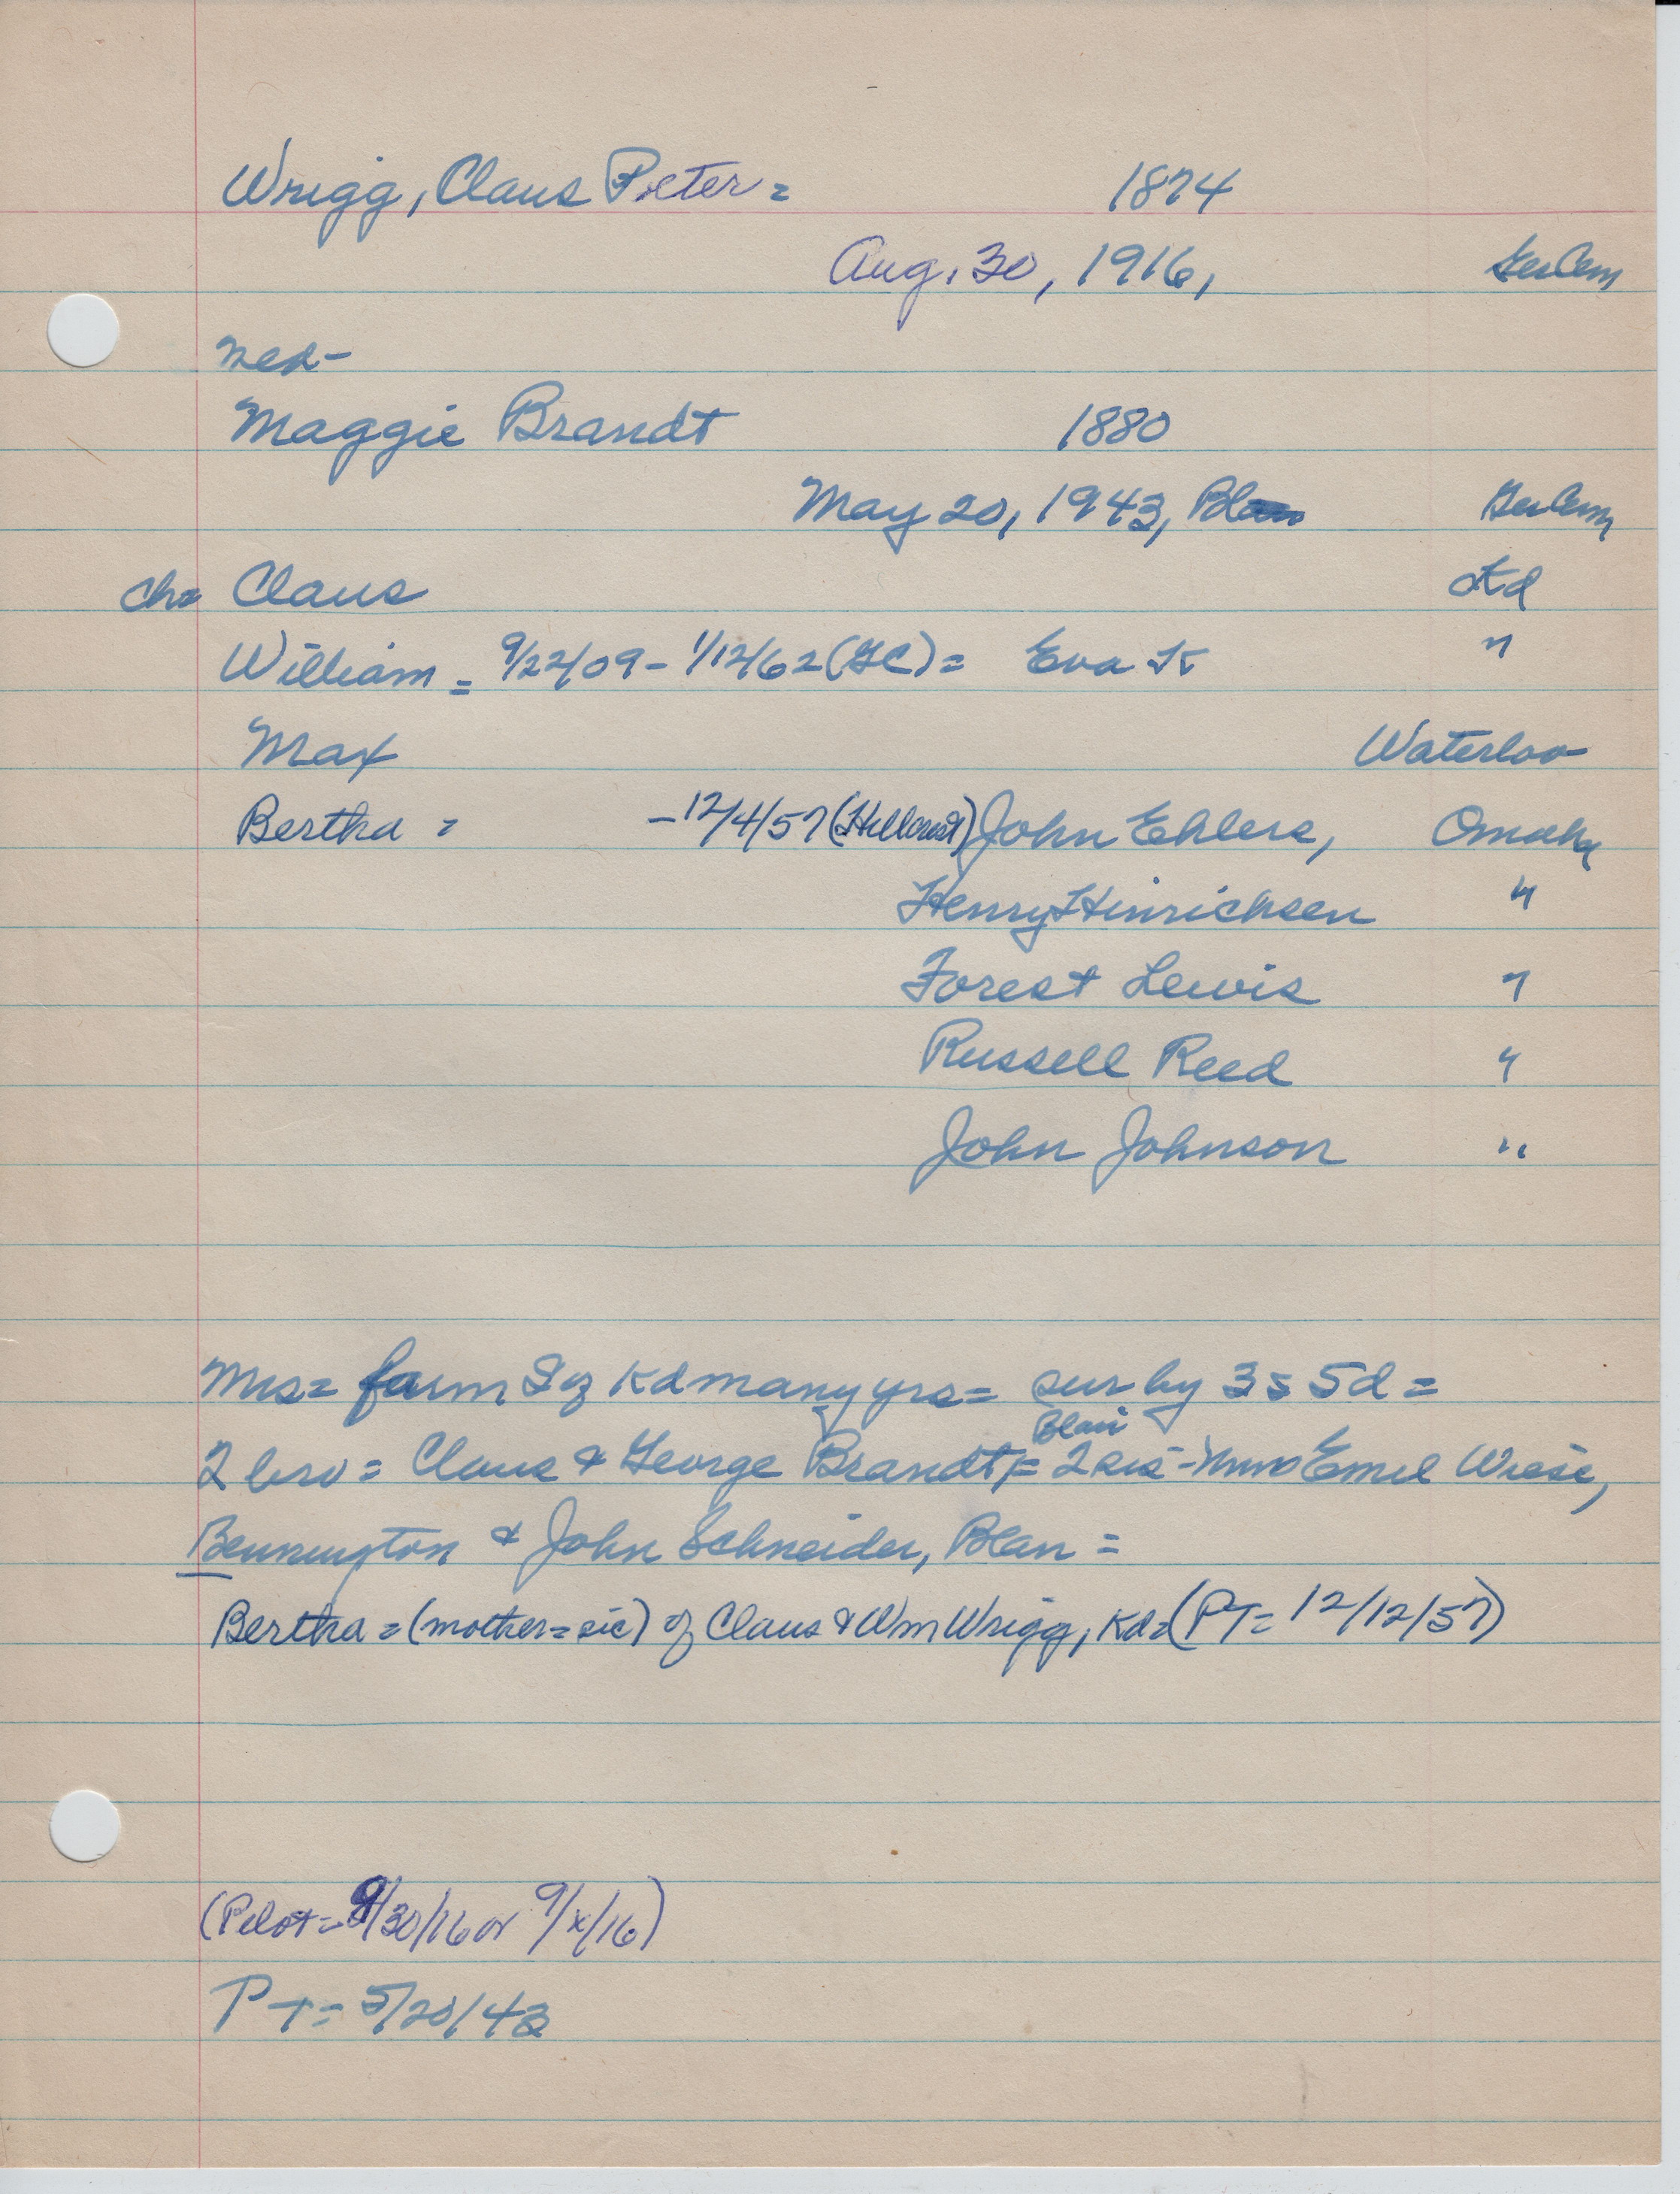 Wrigg, Claus Peter = 1874
Aug. 30, 1916, Ger Cem
med-
Maggie Brandt 1880
May 20, 1943, Blair Ger Cem
ch= Claus Kd
William = 9/22/09 - 1/12/62 (GC) = Eva K "
Max Waterloo
Bertha = -12/4/57 (Hillcrest) John Ehlers, Omaha
Henry Hinrichsen "
Forest Lewis "
Russell Reed "
John Johnson "
Mrs = farm S of Kd many yrs = sur by 3 s 5 d =
Blair
2 bro = Claus & George Brandt, = 2 sis - Mmes Emil Wiese,
Bennington & John Schneider, Blair =
Bertha = (mother = sic) of Claus & Wm Wrigg, Kd = (PT = 12/12/57)
(Pilot = 8/30/16 or 9/x/16)
PT = 5/20/43